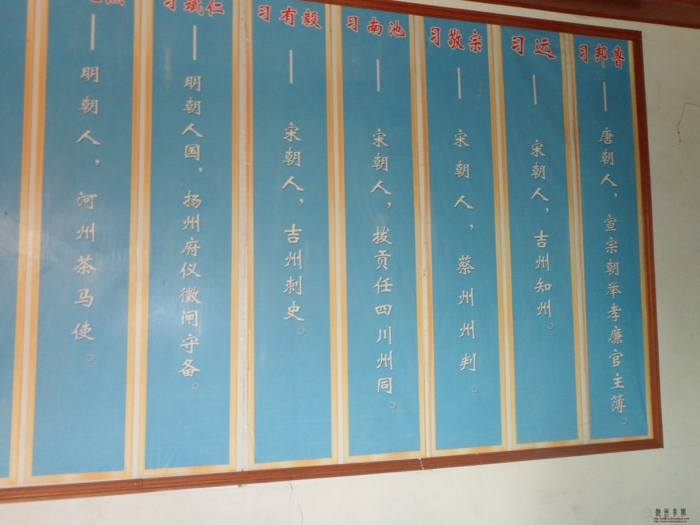 习邦鲁
——唐朝人，宣宗朝举孝廉官主簿。
习远
——宋朝人，吉州知州。
习敬宗
——宋朝人，蔡州州判。
习南池
——宋朝人，拔贡任四川州同。
习有毅
——宋朝人，吉州刺史。
习斌仁
——明朝人国，扬州府仪徽闸守备。
——明朝人，河州茶马使。